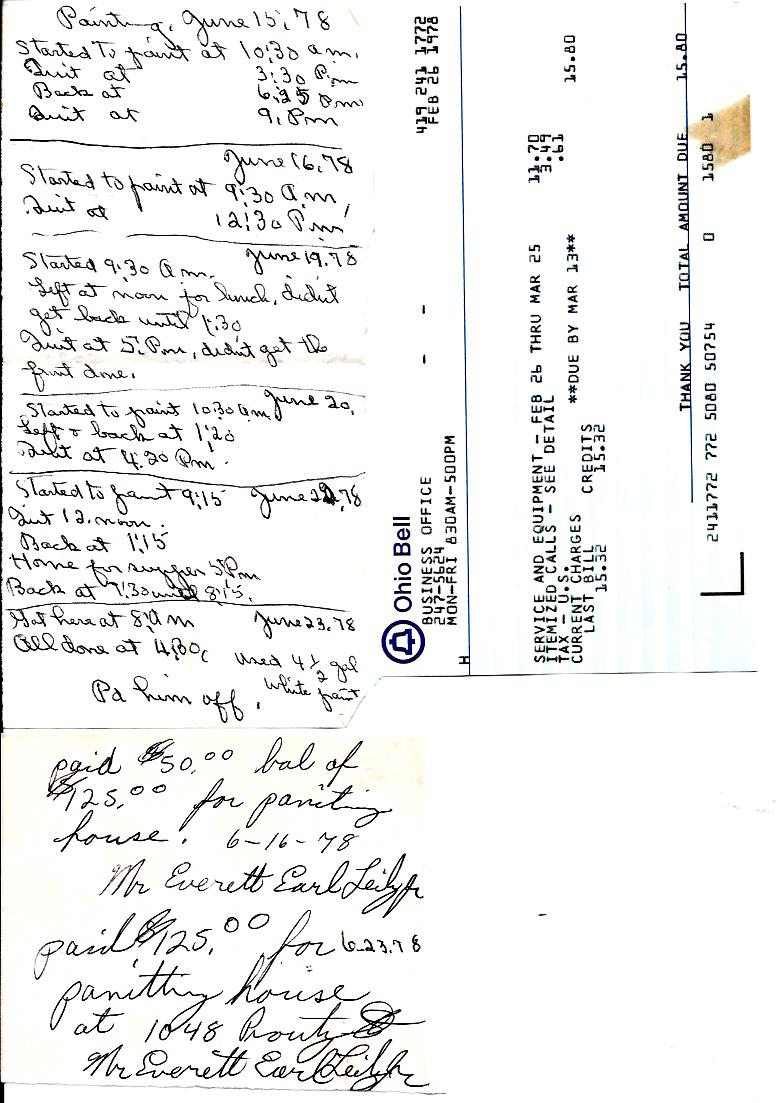 Painting, June 15, 78
Started to paint at 10:30 a.m.
Quit at 3:30 P.m
Back at 6:25 Pm
Quit at 9, Pm
June 16, 78
Started to paint at 9:30 a.m,
Quit at 12:30 P.m
June 19, 78
Started 9:30 a.m.
Left at noon for lunch, didn't
get back until 1:30
Quit at 5. P.m, didn't get the
front done.
June 20,
Started to paint 10:30 am
Left & back at 1:20
Quit at 4:30 Pm.
Started to paint 9:15 June 22, 78
Quit 12. noon.
Back at 1:15
Home for supper 5 Pm
Back at 7:30 until 8:15.
Got here at 8, a m June 23, 78
All done at 4:30
used 4 1/2 gal
white paint
Pd him off.
paid $50.00 bal of
$125.00 for paniting
house. 6-16-78
Mr Everett Earl Leily Jr
paid $125.00 for 6-23.78
panitting house
at 1048 Prouty
Mr Everett Earl Leily Jr
Ohio Bell
BUSINESS OFFICE
247-5624
MON-FRI 830AM-500PM
419 241 1772
FEB 26 1978
H
SERVICE AND EQUIPMENT--FEB 26 THRU MAR 25 11.70
ITEMIZED CALLS - SEE DETAIL 3.49
TAX - U.S. .61
CURRENT CHARGES **DUE BY MAR 13** 15.80
LAST BILL CREDITS
15.32 15.32
THANK YOU TOTAL AMOUNT DUE 15.80
2411772 772 5080 50754 0 1580 1